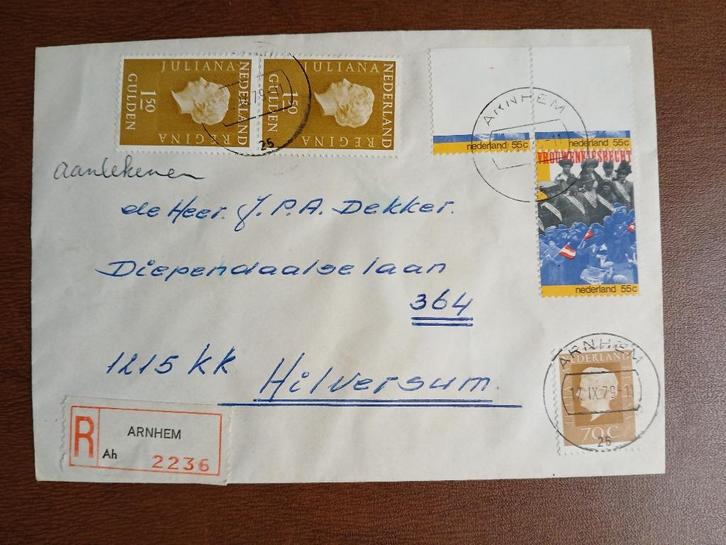 NEDERLAND
JULIANA
REGINA
1.50
GULDEN
NEDERLAND
JULIANA
REGINA
1.50
GULDEN
79
25
ARNHEM
nederland 55c
nederland 55c
VROUWENKIESRECHT
nederland 55c
aantekenen
de Heer. J. P. A. Dekker.
Diependaalselaan
364
1215 KK Hilversum.
ARNHEM
IX 79
25
NEDERLAND
70c
R
ARNHEM
Ah 2236